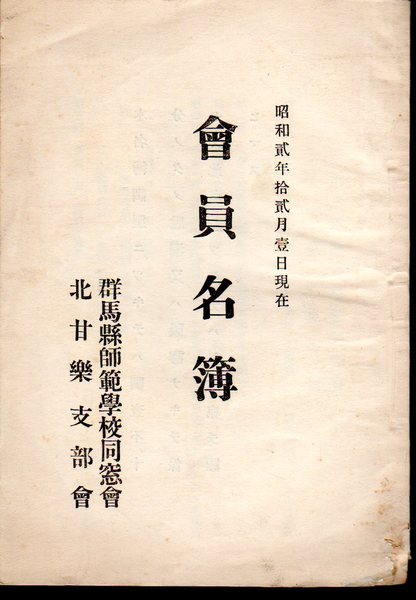 昭和貳年拾貳月壹日現在
會員名簿
群馬縣師範學校同窓會
北甘樂支部會